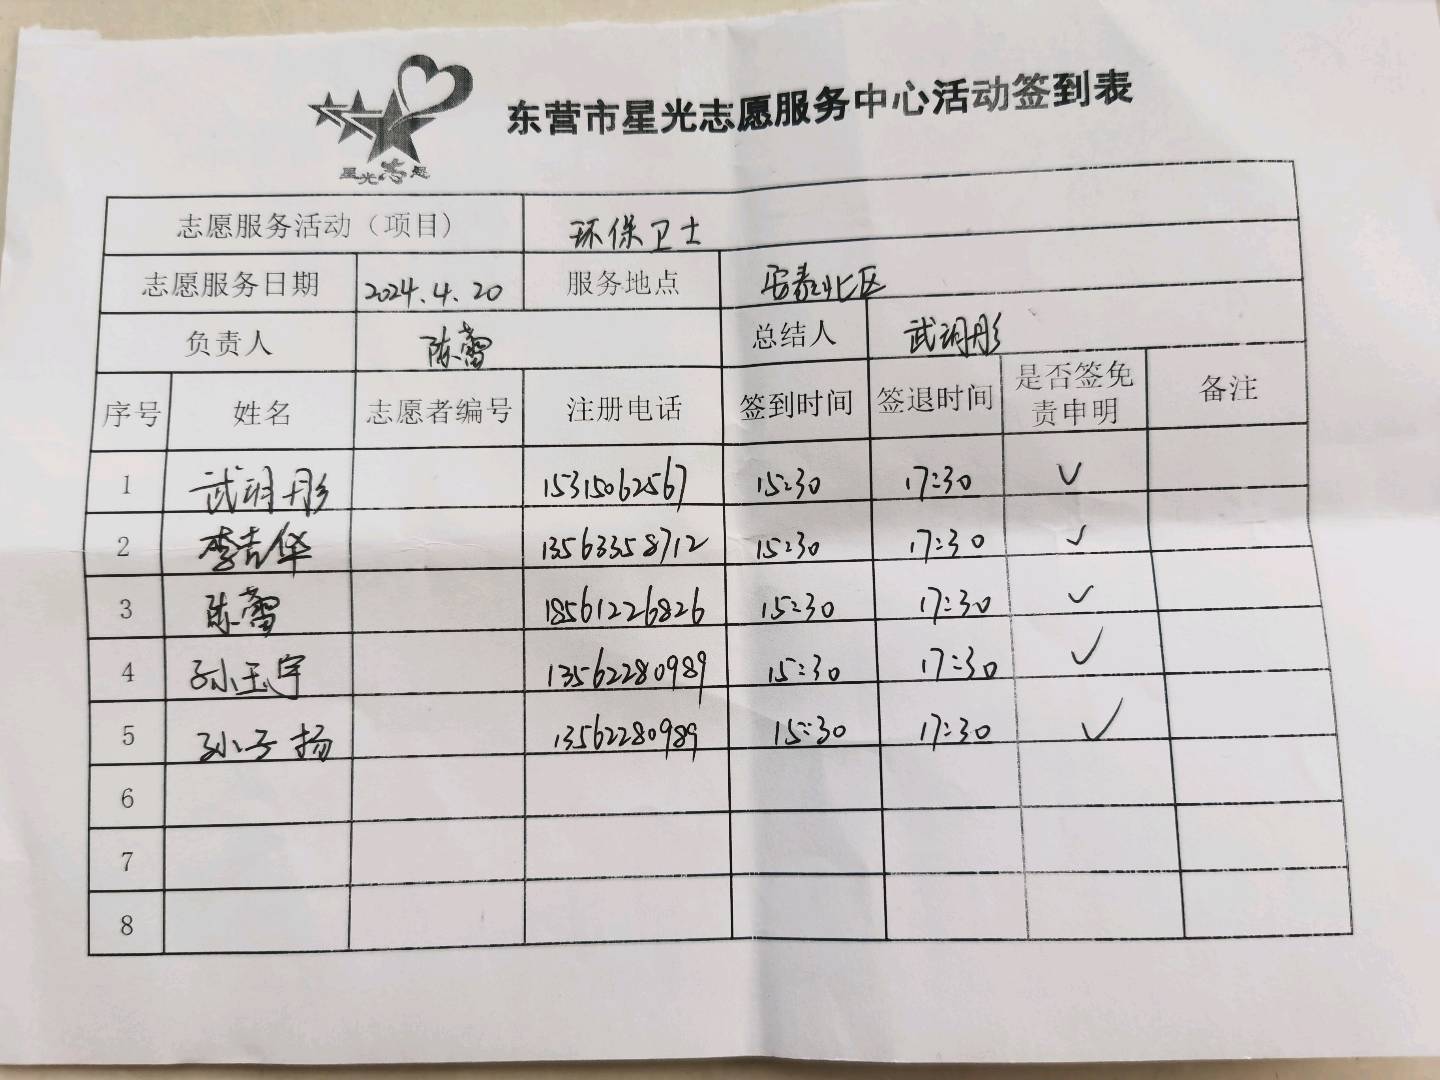 星光志愿
东营市星光志愿服务中心活动签到表
志愿服务活动（项目） 环保卫士
志愿服务日期 2024.4.20 服务地点 安泰北区
负责人 陈蕾 总结人 武玥彤
序号 姓名 志愿者编号 注册电话 签到时间 签退时间 是否签免责申明 备注
1 武玥彤 15315062567 15:30 17:30 ✓
2 李吉华 13563358712 15:30 17:30 ✓
3 陈蕾 18561226826 15:30 17:30 ✓
4 孙玉宇 13562280989 15:30 17:30 ✓
5 孙子扬 13562280989 15:30 17:30 ✓
6
7
8